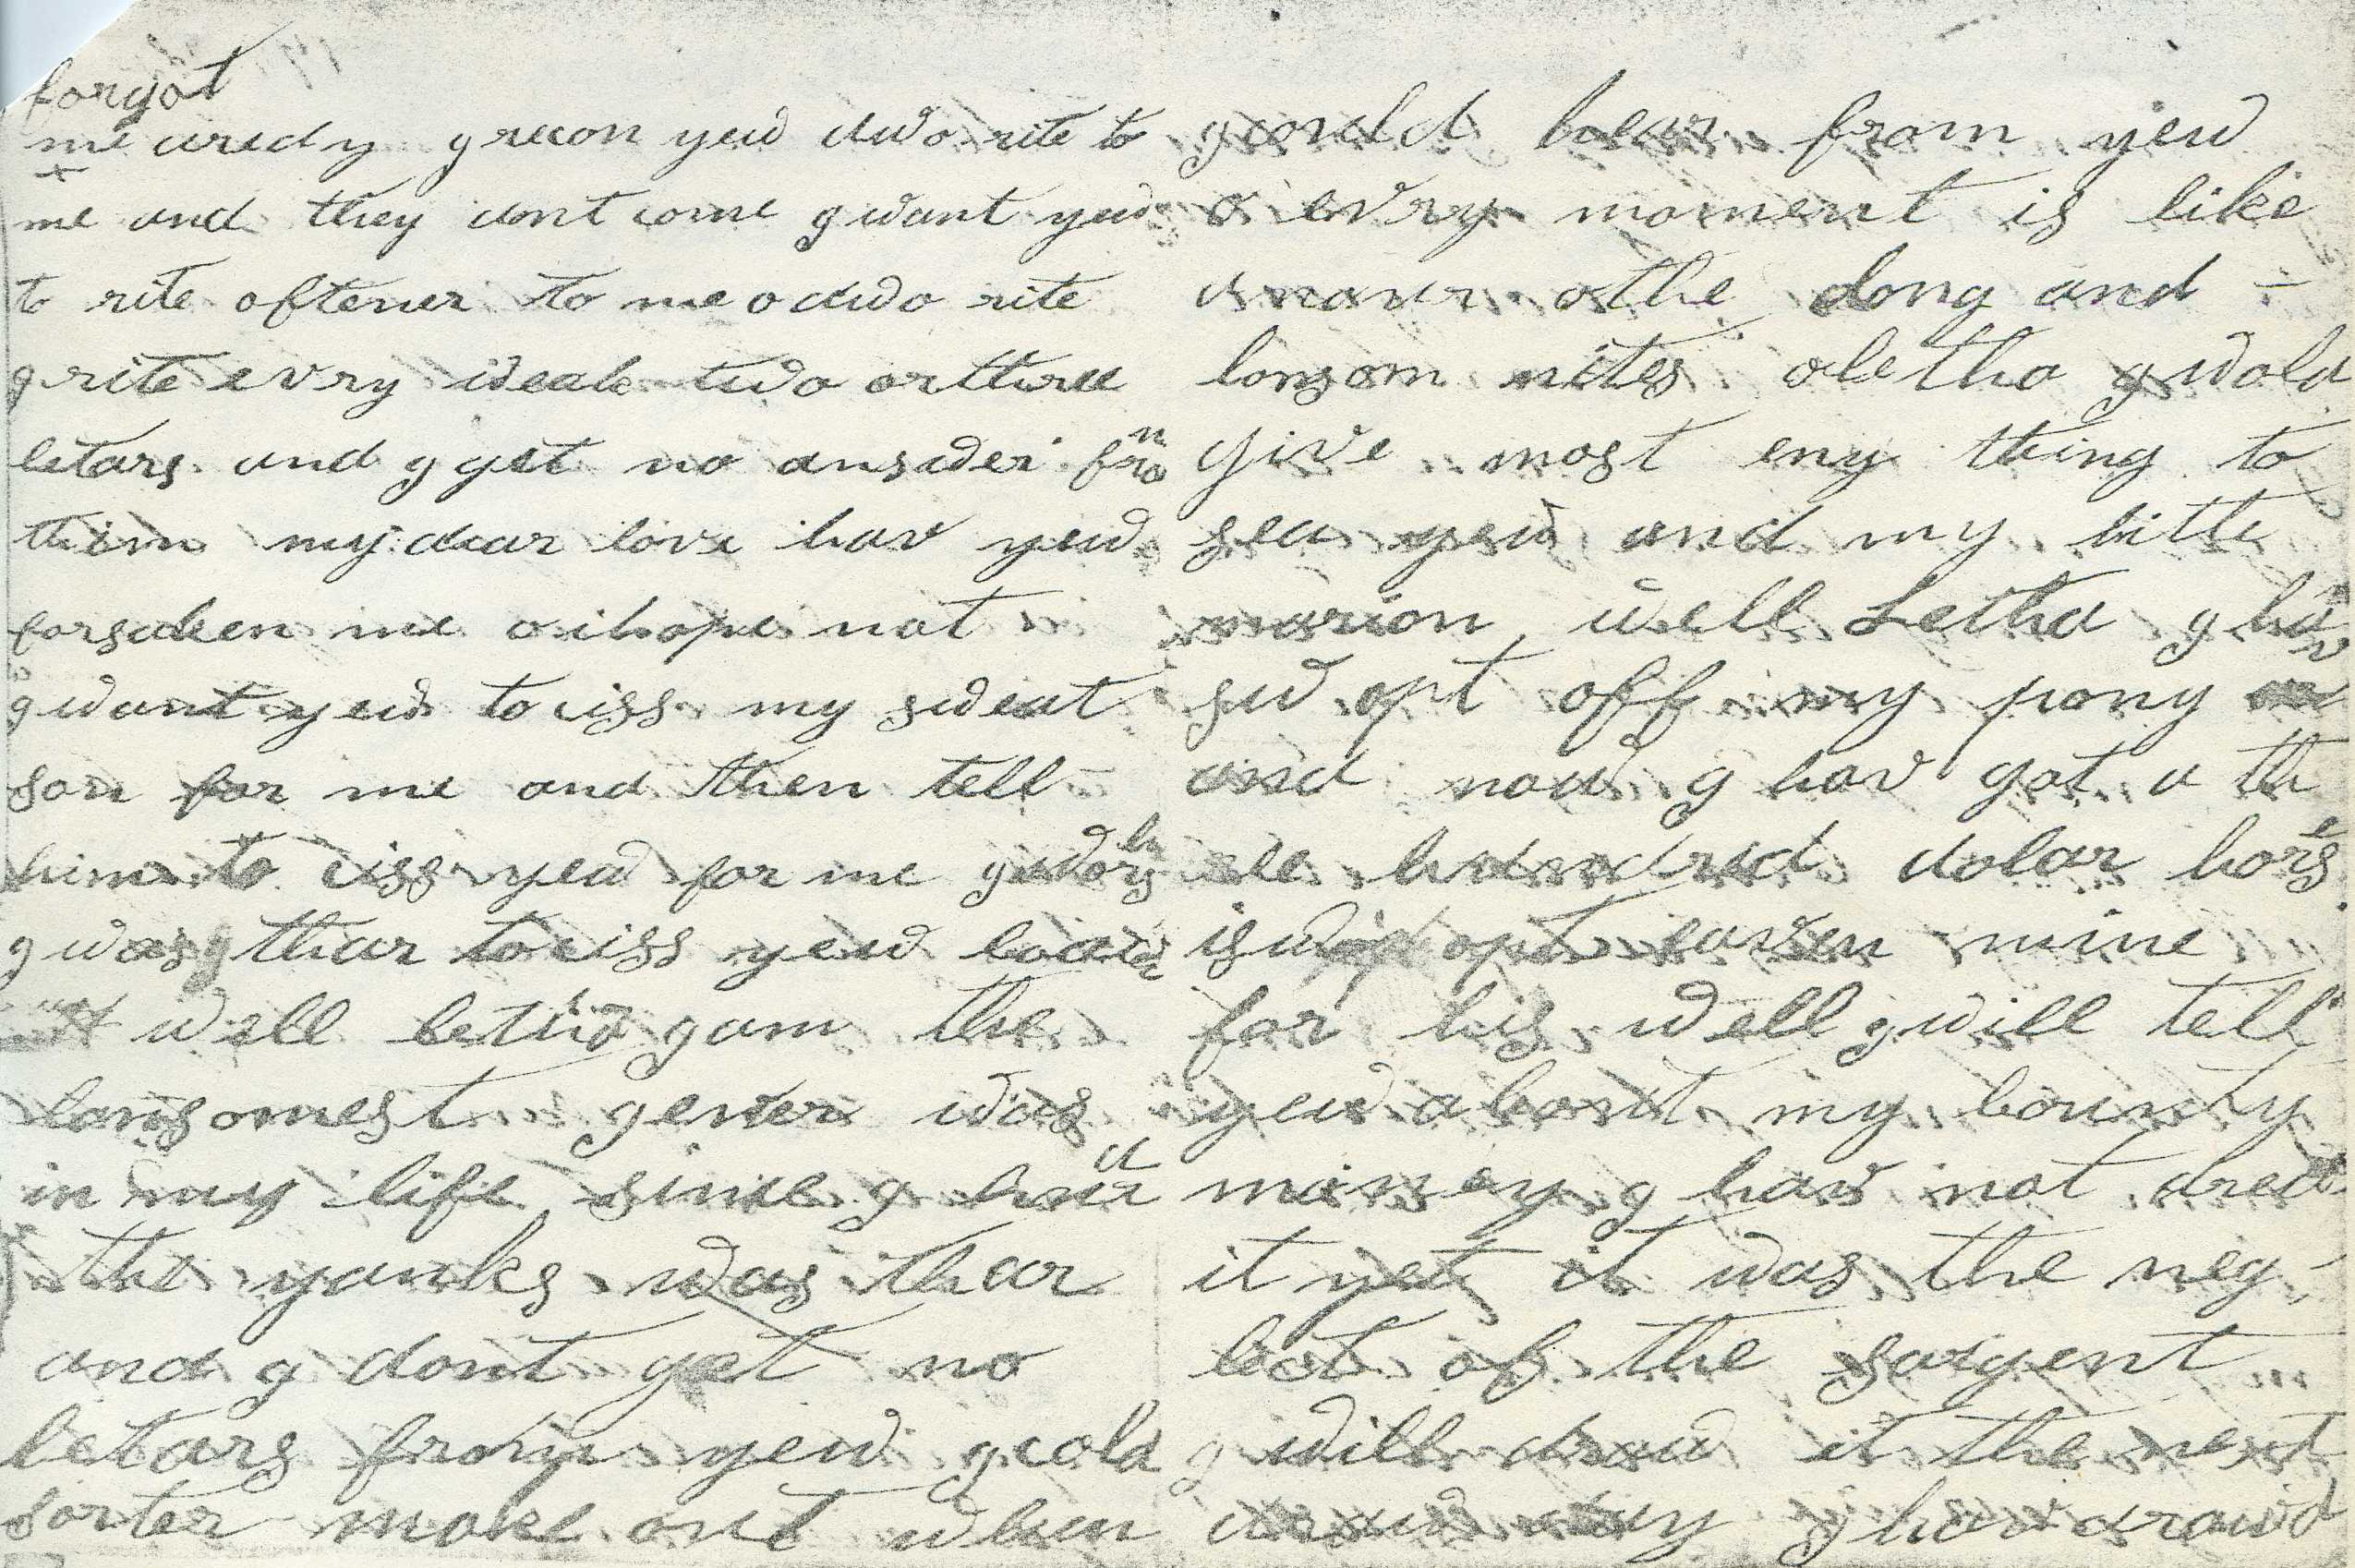 forgot
me aredy g recon yew dwo rite to
me and they dont come g want yew
to rite oftener to me o dwo rite
g rite evry weak two or thre
letars and g get no answer fro m
them my dear love hav yew
forsaken me o i hope not
g want yew to ciss my sweat
son for me and then tell
him to ciss yew for me g wish
g was thar to ciss yew
well letha g am the
lonsomest g ever was
in my life since g hear
the yanks was thar
and g dont get no
letars from yew g cold
sorter make out when
g could hear from yew
o evry moment is like
an our o the long and -
lonsom nites o letha g wold
give most eny thing to
sea yew and my litle
marion well Letha g hav
swopt off my pony
and now g hav got a th
ree hundred dolar hors e
i swopt eaven mine
for his well g will tell
yew about my bounty
money g hav not drew
it yet it was the neg-
lect of the sargent
g will draw it the next
draw day g hav drawd